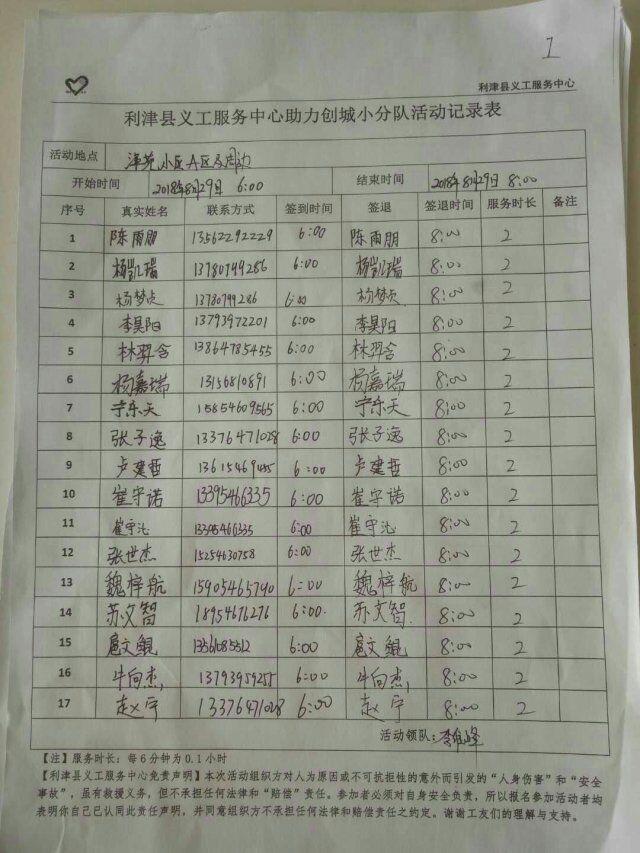 1
利津县义工服务中心
利津县义工服务中心助力创城小分队活动记录表
活动地点 津苑小区A区及周边
开始时间 2018年8月29日 6:00 结束时间 2018年8月29日 8:00
序号 真实姓名 联系方式 签到时间 签退 签退时间 服务时长 备注
1 陈雨朋 13562292229 6:00 陈雨朋 8:00 2
2 杨凯瑞 13780749286 6:00 杨凯瑞 8:00 2
3 杨梦贞 13780749286 6:00 杨梦贞 8:00 2
4 李昊阳 13793972201 6:00 李昊阳 8:00 2
5 林羿含 13864785455 6:00 林羿含 8:00 2
6 杨嘉瑞 13156810891 6:00 杨嘉瑞 8:00 2
7 宁乐天 15854609565 6:00 宁乐天 8:00 2
8 张子逸 13376471028 6:00 张子逸 8:00 2
9 卢建哲 6:00 卢建哲 8:00 2
10 崔守诺 13395466335 6:00 崔守诺 8:00 2
11 崔守沁 13395466335 6:00 崔守沁 8:00 2
12 张世杰 15254630758 6:00 张世杰 8:00 2
13 魏梓航 15905465790 6:00 魏梓航 8:00 2
14 苏文智 18954676276 6:00 苏文智 8:00 2
15 扈文鲲 13561085512 6:00 扈文鲲 8:00 2
16 牛向杰 13793959255 6:00 牛向杰 8:00 2
17 赵宁 13376471028 6:00 赵宁 8:00 2
活动领队:李维峰
【注】服务时长:每6分钟为0.1小时
【利津县义工服务中心免责声明】本次活动组织方对人为原因或不可抗拒性的意外而引发的“人身伤害”和“安全
事故”,虽有救援义务,但不承担任何法律和“赔偿”责任。参加者必须对自身安全负责,所以报名参加活动者均
表明你自己已认同此责任声明,并同意组织方不承担任何法律和赔偿责任之约定。谢谢工友们的理解与支持。